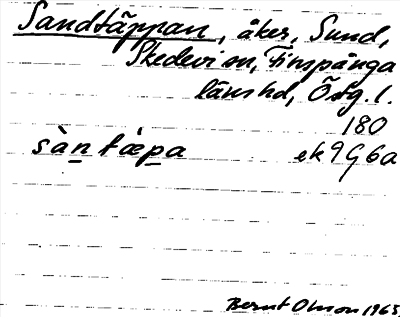 Sandtäppan, åker, Sund,
Skedevi sn, Finspånga
länshd, Östg. l.
180
sàn tæ̀pa ek 9G6a
Bernt Olsson 1965.